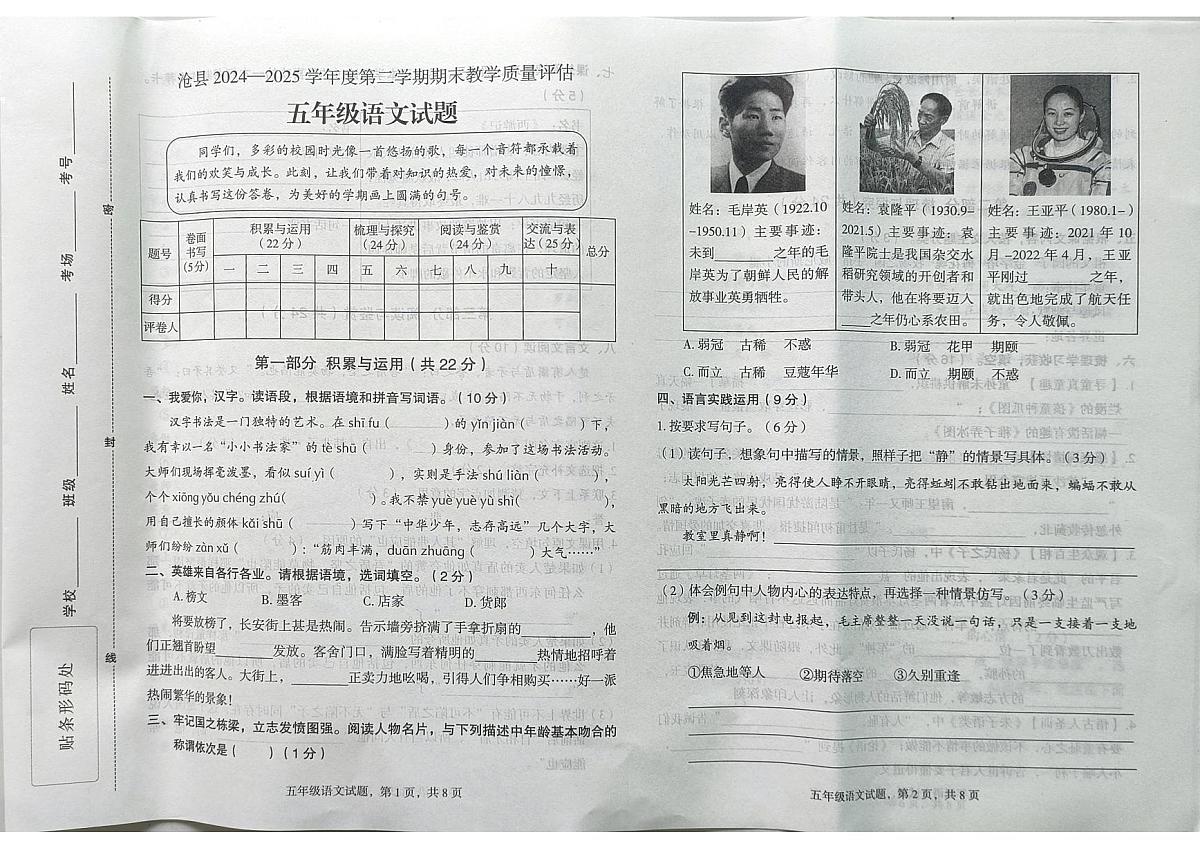 沧县 2024—2025 学年度第二学期期末教学质量评估
五年级语文试题
同学们，多彩的校园时光像一首悠扬的歌，每一个音符都承载着
我们的欢笑与成长。此刻，让我们带着对知识的热爱，对未来的憧憬，
认真书写这份答卷，为美好的学期画上圆满的句号。
题号 卷面书写(5分) 积累与运用（22 分） 梳理与探究（24 分） 阅读与鉴赏（24 分） 交流与表达（25 分） 总分
一 二 三 四 五 六 七 八 九 十
得分
评卷人
第一部分 积累与运用（共 22 分）
一、我爱你，汉字。读语段，根据语境和拼音写词语。（10 分）
汉字书法是一门独特的艺术。在 shī fu（ ）的 yǐn jiàn（ ）下，
我有幸以一名“小小书法家”的 tè shū（ ）身份，参加了这场书法活动。
大师们现场挥毫泼墨，看似 suí yì（ ），实则是手法 shú liàn（ ），
个个 xiōng yǒu chéng zhú（ ）。我不禁 yuè yuè yù shì（ ），
用自己擅长的颜体 kǎi shū（ ）写下“中华少年，志存高远”几个大字，大
师们纷纷 zàn xǔ（ ）：“筋肉丰满，duān zhuāng（ ）大气……”
二、英雄来自各行各业。请根据语境，选词填空。（2 分）
A. 榜文 B. 墨客 C. 店家 D. 货郎
将要放榜了，长安街上甚是热闹。告示墙旁挤满了手拿折扇的________，他
们正翘首盼望________发放。客舍门口，满脸写着精明的________热情地招呼着
进进出出的客人。大街上，________正卖力地吆喝，引得人们争相购买……好一派
热闹繁华的景象！
三、牢记国之栋梁，立志发愤图强。阅读人物名片，与下列描述中年龄基本吻合的
称谓依次是（ ）（1 分）
五年级语文试题，第 1 页，共 8 页
学校________ 班级________ 姓名________ 考场________ 考号________
密
封
线
贴条形码处
姓名：毛岸英（1922.10
-1950.11）主要事迹：
未到________之年的毛
岸英为了朝鲜人民的解
放事业英勇牺牲。
姓名：袁隆平（1930.9-
2021.5）主要事迹：袁
隆平院士是我国杂交水
稻研究领域的开创者和
带头人，他在将要迈人
____之年仍心系农田。
姓名：王亚平（1980.1-）
主要事迹：2021 年 10
月 -2022 年 4 月，王亚
平刚过____________之年，
就出色地完成了航天任
务，令人敬佩。
A. 弱冠 古稀 不惑 B. 弱冠 花甲 期颐
C. 而立 古稀 豆蔻年华 D. 而立 期颐 不惑
四、语言实践运用（9 分）
1. 按要求写句子。（6 分）
（1）读句子，想象句中描写的情景，照样子把“静”的情景写具体。（3 分）
太阳光芒四射，亮得使人睁不开眼睛，亮得蚯蚓不敢钻出地面来，蝙蝠不敢从
黑暗的地方飞出来。
教室里真静啊！
（2）体会例句中人物内心的表达特点，再选择一种情景仿写。（3 分）
例：从见到这封电报起，毛主席整整一天没说一句话，只是一支接着一支地
吸着烟。
①焦急地等人 ②期待落空 ③久别重逢
五年级语文试题，第 2 页，共 8 页